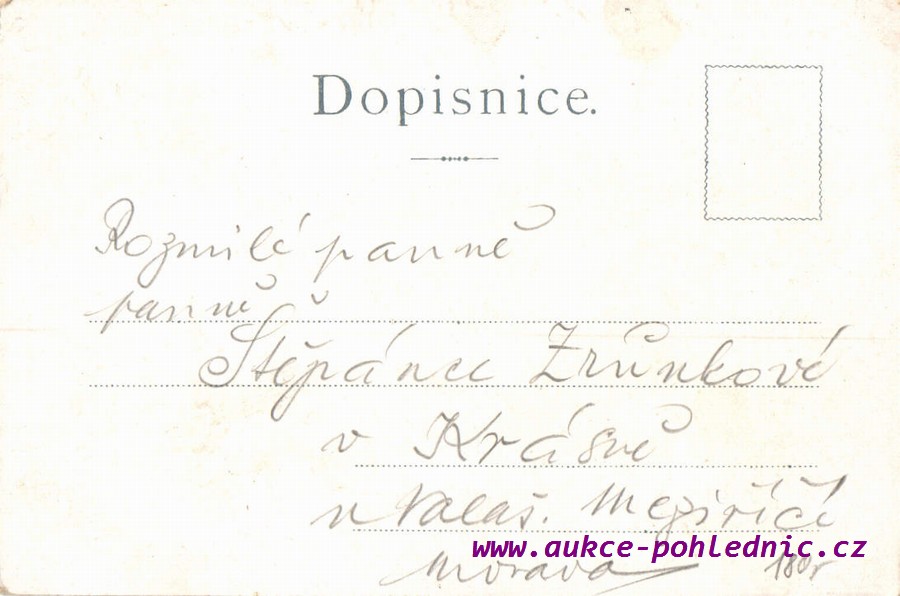 Dopisnice.
Rozmilé panně
panně
Štěpánce Zrůnkové
v Krásně
u Valaš. Meziříčí
www.aukce-pohlednic.cz
Morava